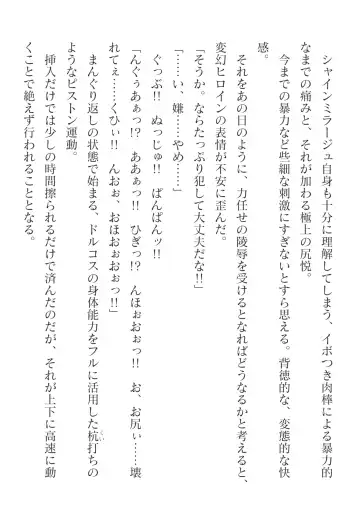 シャインミラージュ自身も十分に理解してしまう、イボつき肉棒による暴力的
なまでの痛みと、それが加わる極上の尻悦。
　今までの暴力など些細な刺激にすぎないとすら思える。背徳的な、変態的な快
感。
　それをあの日のように、力任せの陵辱を受けるとなればどうなるかと考えると、
変幻ヒロインの表情が不安に歪んだ。
「そうか。ならたっぷり犯して大丈夫だな!!」
「……い、嫌……やめ……」
　ぐっぷ!! ぬっじゅ!! ぱんぱんッ!!
「んぐぅあぁっ!? ああぁっ!! ひぎっ!? んほぉおぉっ!! お、お尻ぃ……壊
れてぇ……くひぃ!! んおぉ、おほおぉおぉっ!!」
　まんぐり返しの状態で始まる、ドルコスの身体能力をフルに活用した杭打ちの
ようなピストン運動。
　挿入だけでは少しの時間擦られるだけで済んだのだが、それが上下に高速に動
くことで絶えず行われることとなる。